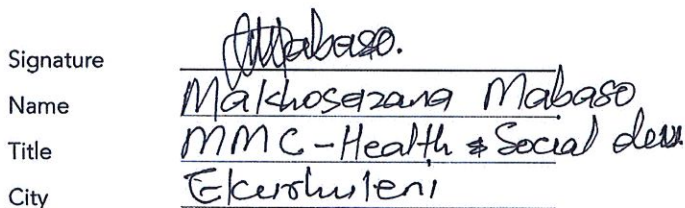 Signature Mabaso.
Name Makhosazana Mabaso
Title MMC - Health & Social
City Ekurhuleni